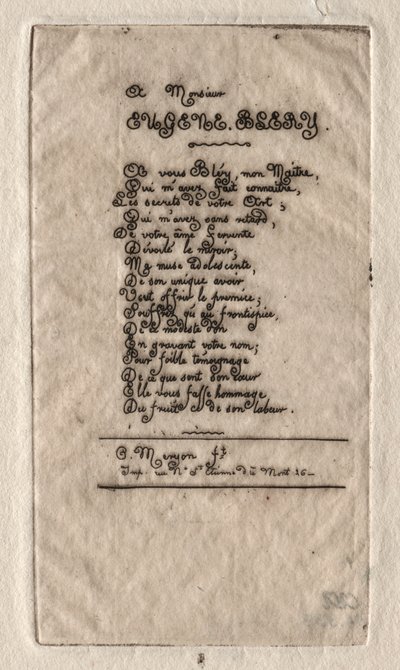 A Monsieur
EUGENE. BLERY.
A vous Bléry, mon Maitre,
Qui m'avez fait connaitre,
Les secrets de votre Art ;
Qui m'avez sans retard,
De votre âme fervente
Dévoilé le miroir;
Ma muse adolescente,
De son unique avoir
Veut offrir le premice;
Souffrez qu'au frontispice,
De ce modeste don
En gravant votre nom;
Pour foible témoignage
De ce que sent son cœur
Elle vous fasse hommage
Du fruit de son labeur.
C. Meryon ft
Imp. rue Ne St Etienne du Mont 26